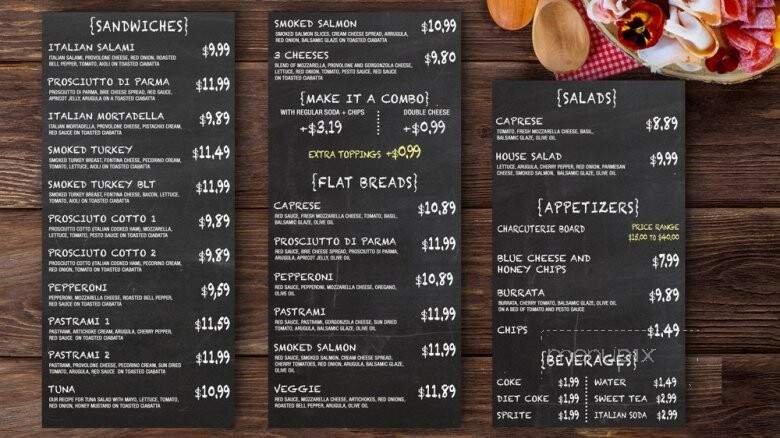 {SANDWICHES}
ITALIAN SALAMI $9,99
ITALIAN SALAMI, PROVOLONE CHEESE, RED ONION, ROASTED
BELL PEPPER, TOMATO, AIOLI ON TOASTED CIABATTA
PROSCIUTTO DI PARMA $11,99
PROSCIUTTO DI PARMA, BRIE CHEESE SPREAD, RED SAUCE,
APRICOT JELLY, ARUGULA ON A TOASTED CIABATTA
ITALIAN MORTADELLA $9,89
ITALIAN MORTADELLA, PROVOLONE CHEESE, PISTACHIO CREAM,
RED SAUCE ON TOASTED CIABATTA
SMOKED TURKEY $11,49
SMOKED TURKEY BREAST, FONTINA CHEESE, PECORINO CREAM,
TOMATO, LETTUCE, AIOLI ON TOASTED CIABATTA
SMOKED TURKEY BLT $11,99
SMOKED TURKEY BREAST, FONTINA CHEESE, BACON, LETTUCE,
TOMATO, AIOLI ON TOASTED CIABATTA
PROSCIUTO COTTO 1 $9,89
PROSCIUTTO COTTO (ITALIAN COOKED HAM), MOZZARELLA,
LETTUCE, TOMATO, PESTO SAUCE ON TOASTED CIABATTA
PROSCIUTO COTTO 2 $9,89
PROSCIUTTO COTTO (ITALIAN COOKED HAM), PECORINO CREAM,
RED ONION, TOMATO ON TOASTED CIABATTA
PEPPERONI $9,59
PEPPERONI, MOZZARELLA CHEESE, ROASTED BELL PEPPER,
RED SAUCE ON TOASTED CIABATTA
PASTRAMI 1 $11,59
PASTRAMI, ARTICHOKE CREAM, ARUGULA, CHERRY PEPPER,
RED SAUCE ON TOASTED CIABATTA
PASTRAMI 2 $11,99
PASTRAMI, PROVOLONE CHEESE, PECORINO CREAM, SUN DRIED
TOMATO, ARUGULA, RED SAUCE ON TOASTED CIABATTA
TUNA $10,99
OUR RECIPE FOR TUNA SALAD WITH MAYO, LETTUCE, TOMATO,
RED ONION, HONEY MUSTARD ON TOASTED CIABATTA
SMOKED SALMON $10,99
SMOKED SALMON SLICES, CREAM CHEESE SPREAD, ARRUGULA,
RED ONION, BALSAMIC GLAZE ON TOASTED CIABATTA
3 CHEESES $9,80
BLEND OF MOZZARELLA, PROVOLONE AND GORGONZOLA CHEESE,
LETTUCE, RED ONION, TOMATO, PESTO SAUCE, RED SAUCE
ON TOASTED CIABATTA
{MAKE IT A COMBO}
WITH REGULAR SODA + CHIPS DOUBLE CHEESE
+$3,19 +$0,99
EXTRA TOPPINGS +$0,99
{FLAT BREADS}
CAPRESE $10,89
RED SAUCE, FRESH MOZZARELLA CHEESE, TOMATO, BASIL,
BALSAMIC GLAZE, OLIVE OIL
PROSCIUTTO DI PARMA $11,99
RED SAUCE, BRIE CHEESE SPREAD, PROSCIUTTO DI PARMA,
ARUGULA, APRICOT JELLY, OLIVE OIL
PEPPERONI $10,89
RED SAUCE, PEPPERONI, MOZZARELLA CHEESE, OREGANO,
OLIVE OIL
PASTRAMI $11,99
RED SAUCE, PASTRAMI, GORGONZOLA CHEESE, SUN DRIED
TOMATO, ARUGULA, BALSAMIC GLAZE, OLIVE OIL
SMOKED SALMON $11,99
RED SAUCE, SMOKED SALMON, CREAM CHEESE SPREAD,
CHERRY TOMATOES, RED ONION, ARUGULA, BALSAMIC GLAZE,
OLIVE OIL
VEGGIE $11,89
RED SAUCE, MOZZARELLA CHEESE, ARTICHOKES, RED ONIONS,
ROASTED BELL PEPPER, ARUGULA, OLIVE OIL
{SALADS}
CAPRESE $8,89
TOMATO, FRESH MOZZARELLA CHEESE, BASIL,
BALSAMIC GLAZE, OLIVE OIL
HOUSE SALAD $9,99
LETTUCE, ARUGULA, CHERRY PEPPER, RED ONION, PARMESAN
CHEESE, SMOKED SALMON, BALSAMIC GLAZE, OLIVE OIL
{APPETIZERS}
CHARCUTERIE BOARD PRICE RANGE
$18,00 TO $40,00
BLUE CHEESE AND
HONEY CHIPS $7,99
BURRATA $9,89
BURRATA, CHERRY TOMATO, BALSAMIC GLAZE, OLIVE OIL
ON A BED OF TOMATO AND PESTO SAUCE
CHIPS $1,49
menupix
{BEVERAGES}
COKE $1,99 WATER $1,49
DIET COKE $1,99 SWEET TEA $2,99
SPRITE $1,99 ITALIAN SODA $2,99